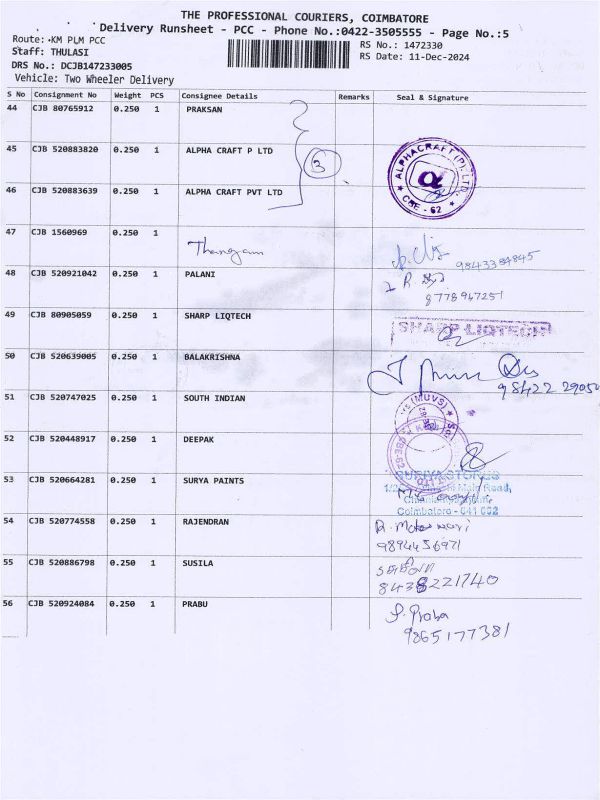 THE PROFESSIONAL COURIERS, COIMBATORE
Delivery Runsheet - PCC - Phone No.:0422-3505555 - Page No.:5
Route: KM PLM PCC
RS No.: 1472330
Staff: THULASI
RS Date: 11-Dec-2024
DRS No.: DCJB147233005
Vehicle: Two Wheeler Delivery
S No Consignment No Weight PCS Consignee Details Remarks Seal & Signature
44 CJB 80765912 0.250 1 PRAKSAN
45 CJB 520883820 0.250 1 ALPHA CRAFT P LTD
3
ALPHACRAFT (P) LTD. CBE - 62
46 CJB 520883639 0.250 1 ALPHA CRAFT PVT LTD
47 CJB 1560969 0.250 1
Thangam
9843384845
48 CJB 520921042 0.250 1 PALANI
8778947251
49 CJB 80905059 0.250 1 SHARP LIQTECH
SHARP LIQTECH
50 CJB 520639005 0.250 1 BALAKRISHNA
98422 29050
51 CJB 520747025 0.250 1 SOUTH INDIAN
(MUVS)
52 CJB 520448917 0.250 1 DEEPAK
53 CJB 520664281 0.250 1 SURYA PAINTS
SURIYA STORES
Main Road,
Coimbatore - 641 062
54 CJB 520774558 0.250 1 RAJENDRAN
9894456971
55 CJB 520886798 0.250 1 SUSILA
8438221740
56 CJB 520924084 0.250 1 PRABU
P. Praba
9865177381